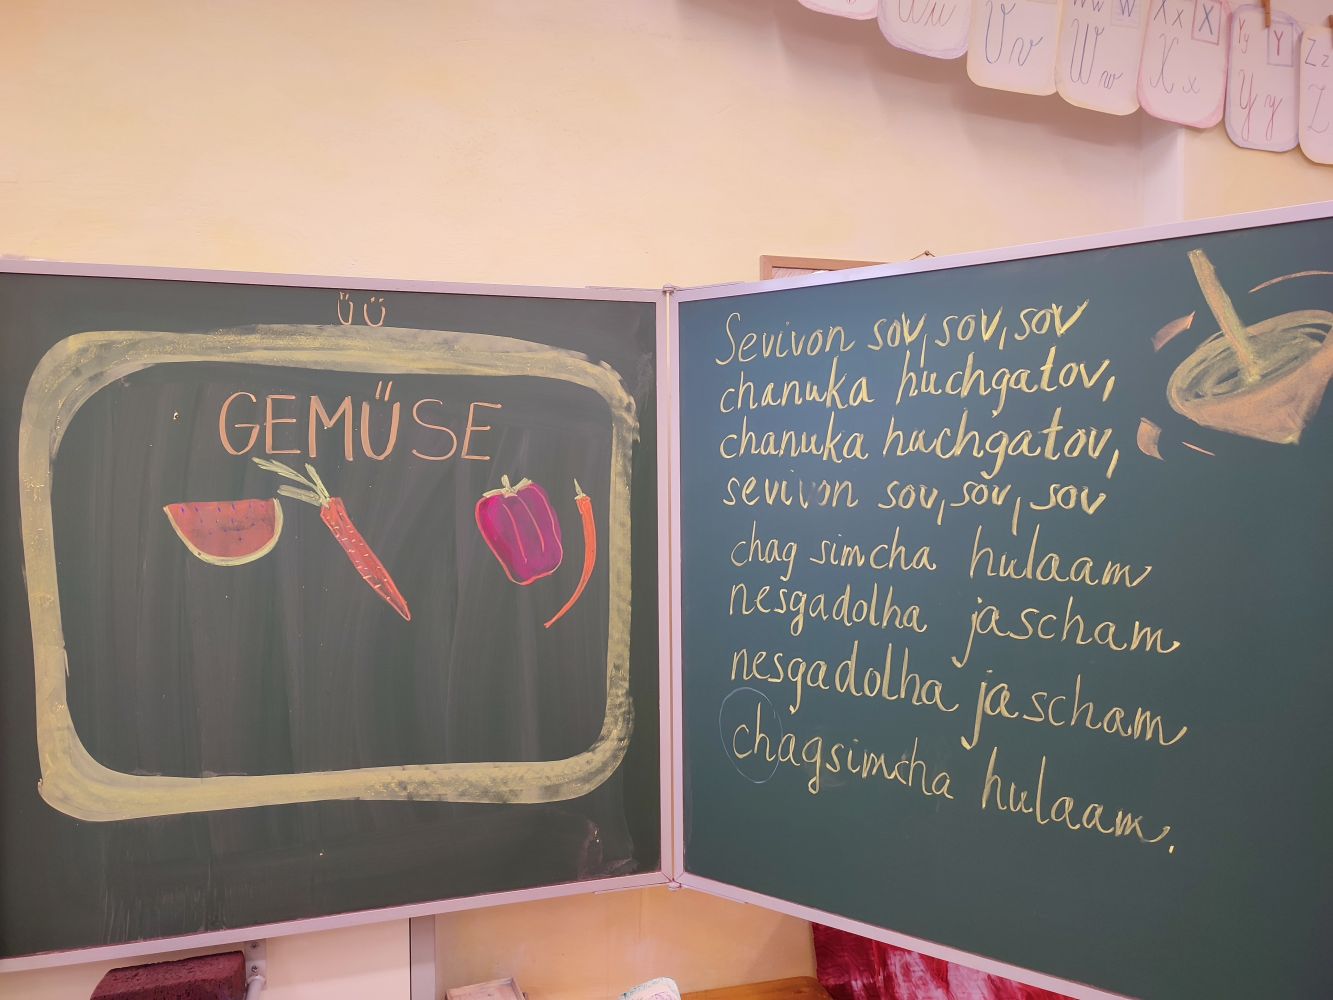 Uu
Vv
Ww W
Ww
Xx X
Xx
Yy Y
Yy
Zz
Z
ü ü
GEMÜSE
Sevivon sov, sov, sov
chanuka huchgatov,
chanuka huchgatov,
sevivon sov, sov, sov
chag simcha hulaam
nesgadolha jascham
nesgadolha jascham
chagsimcha hulaam.